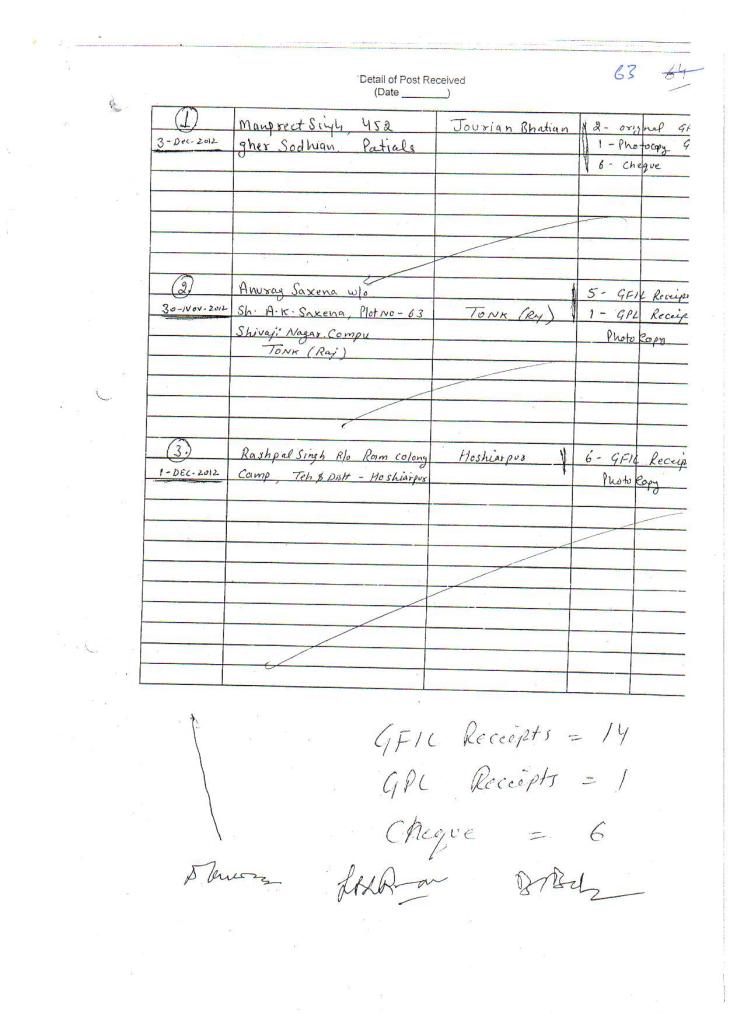 63 64
Detail of Post Received
(Date ________)
1
Manpreet Singh, 452 Jourian Bhatian 2- original GF
3-Dec-2012 gher Sodhian, Patiala 1- Photocopy G
6- Cheque
2
Anurag Saxena w/o 5- GFIL Receip
30-Nov-2012 Sh. A.K. Saxena, Plot No-63 TONK (Raj) 1- GPL Receip
Shivaji Nagar, Compu Photo Copy
TONK (Raj)
3.
Rashpal Singh R/o Ram colony Hoshiarpur 6- GFIL Receip
1-DEC-2012 Camp, Teh & Distt - Hoshiarpur Photo Copy
GFIL Receipts = 14
GPL Receipts = 1
Cheque = 6